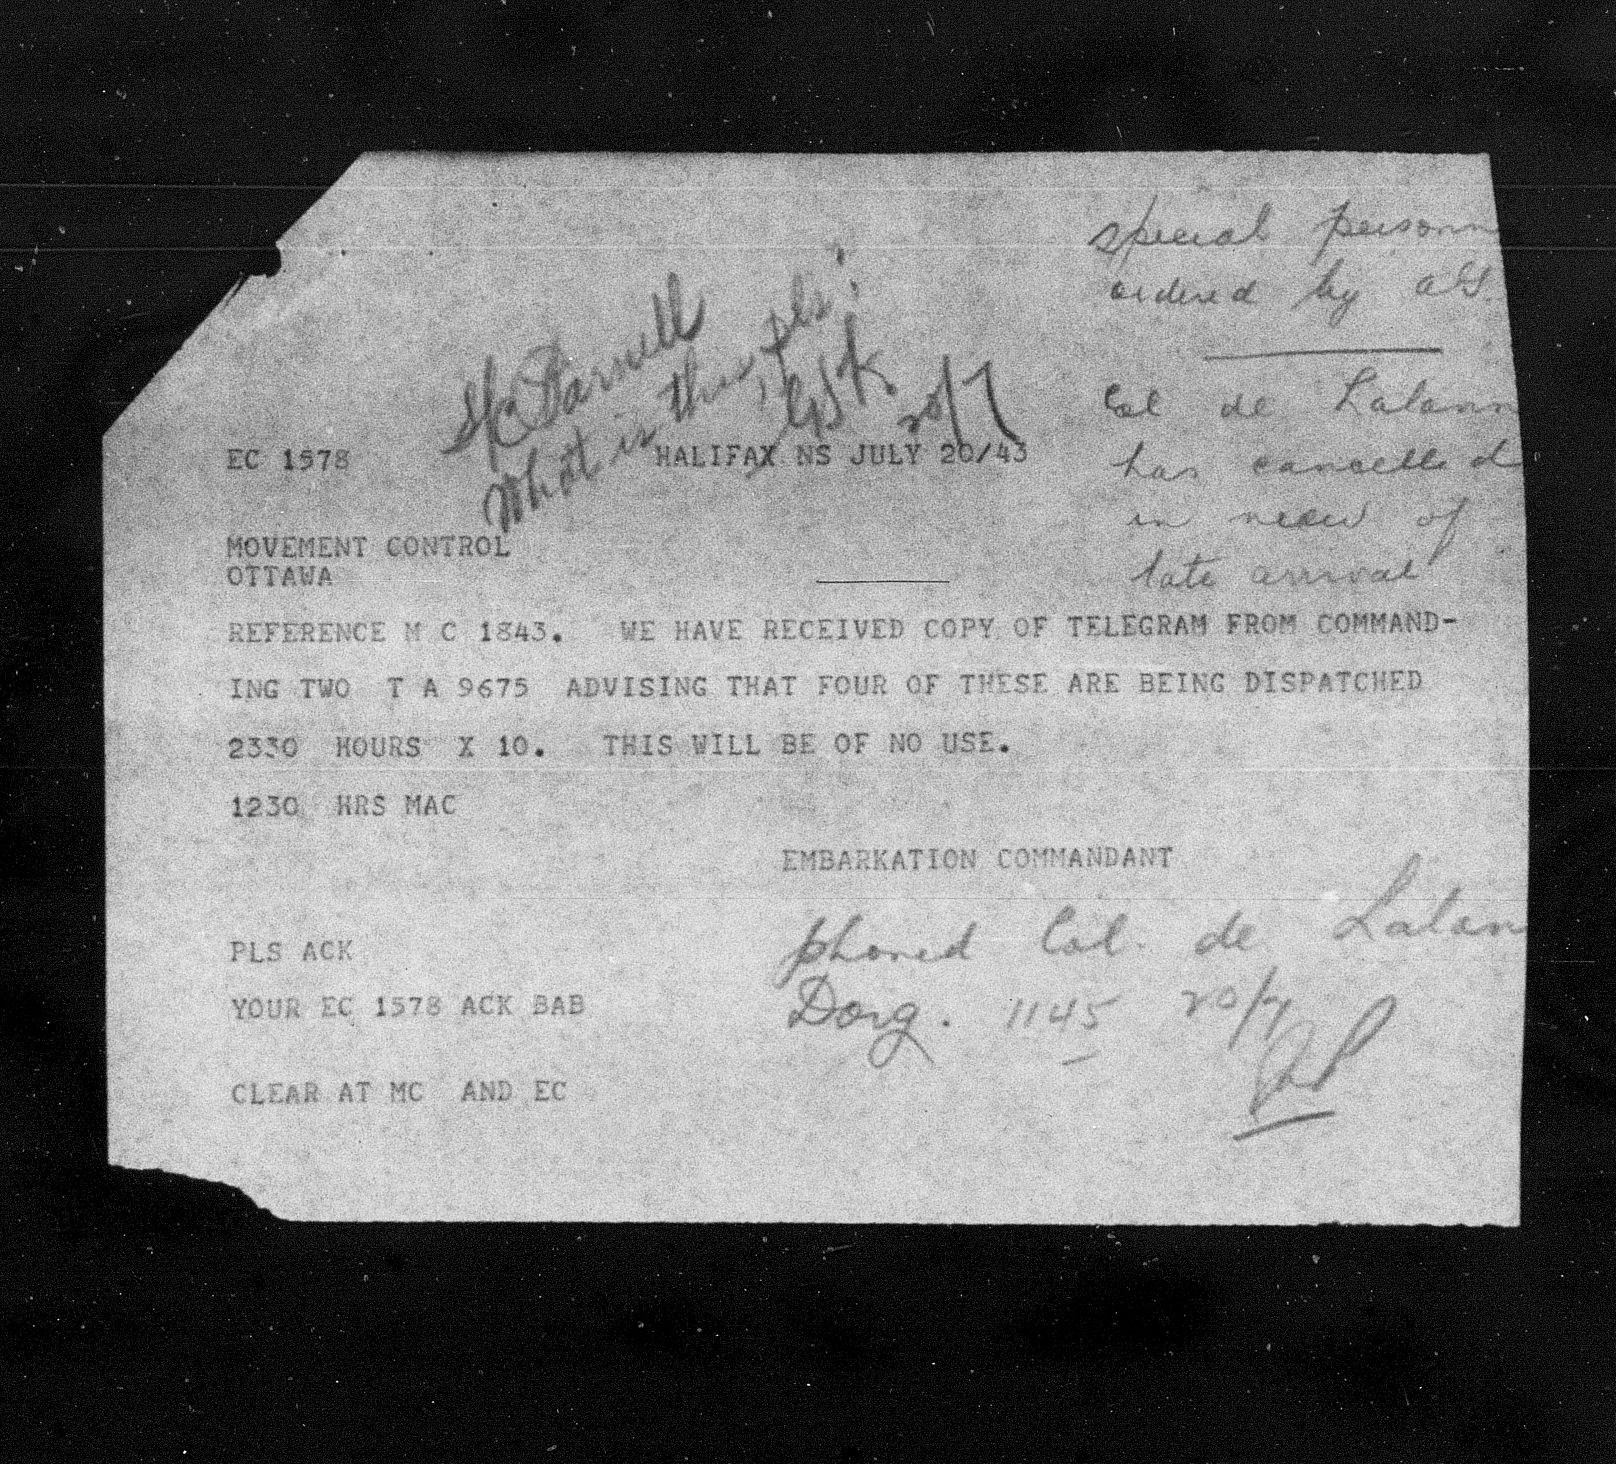 special personn
ordered by AG.
S/C Parnell
What is this, pls?
20/7
Col de Lalann
has cancelled
in view of
late arrival
EC 1578 HALIFAX NS JULY 20/43
MOVEMENT CONTROL
OTTAWA
REFERENCE M C 1843. WE HAVE RECEIVED COPY OF TELEGRAM FROM COMMAND-
ING TWO T A 9675 ADVISING THAT FOUR OF THESE ARE BEING DISPATCHED
2330 HOURS X 10. THIS WILL BE OF NO USE.
1230 HRS MAC
EMBARKATION COMMANDANT
phoned Col. de Lalan
PLS ACK
Dorg. 1145 20/7
YOUR EC 1578 ACK BAB
CLEAR AT MC AND EC